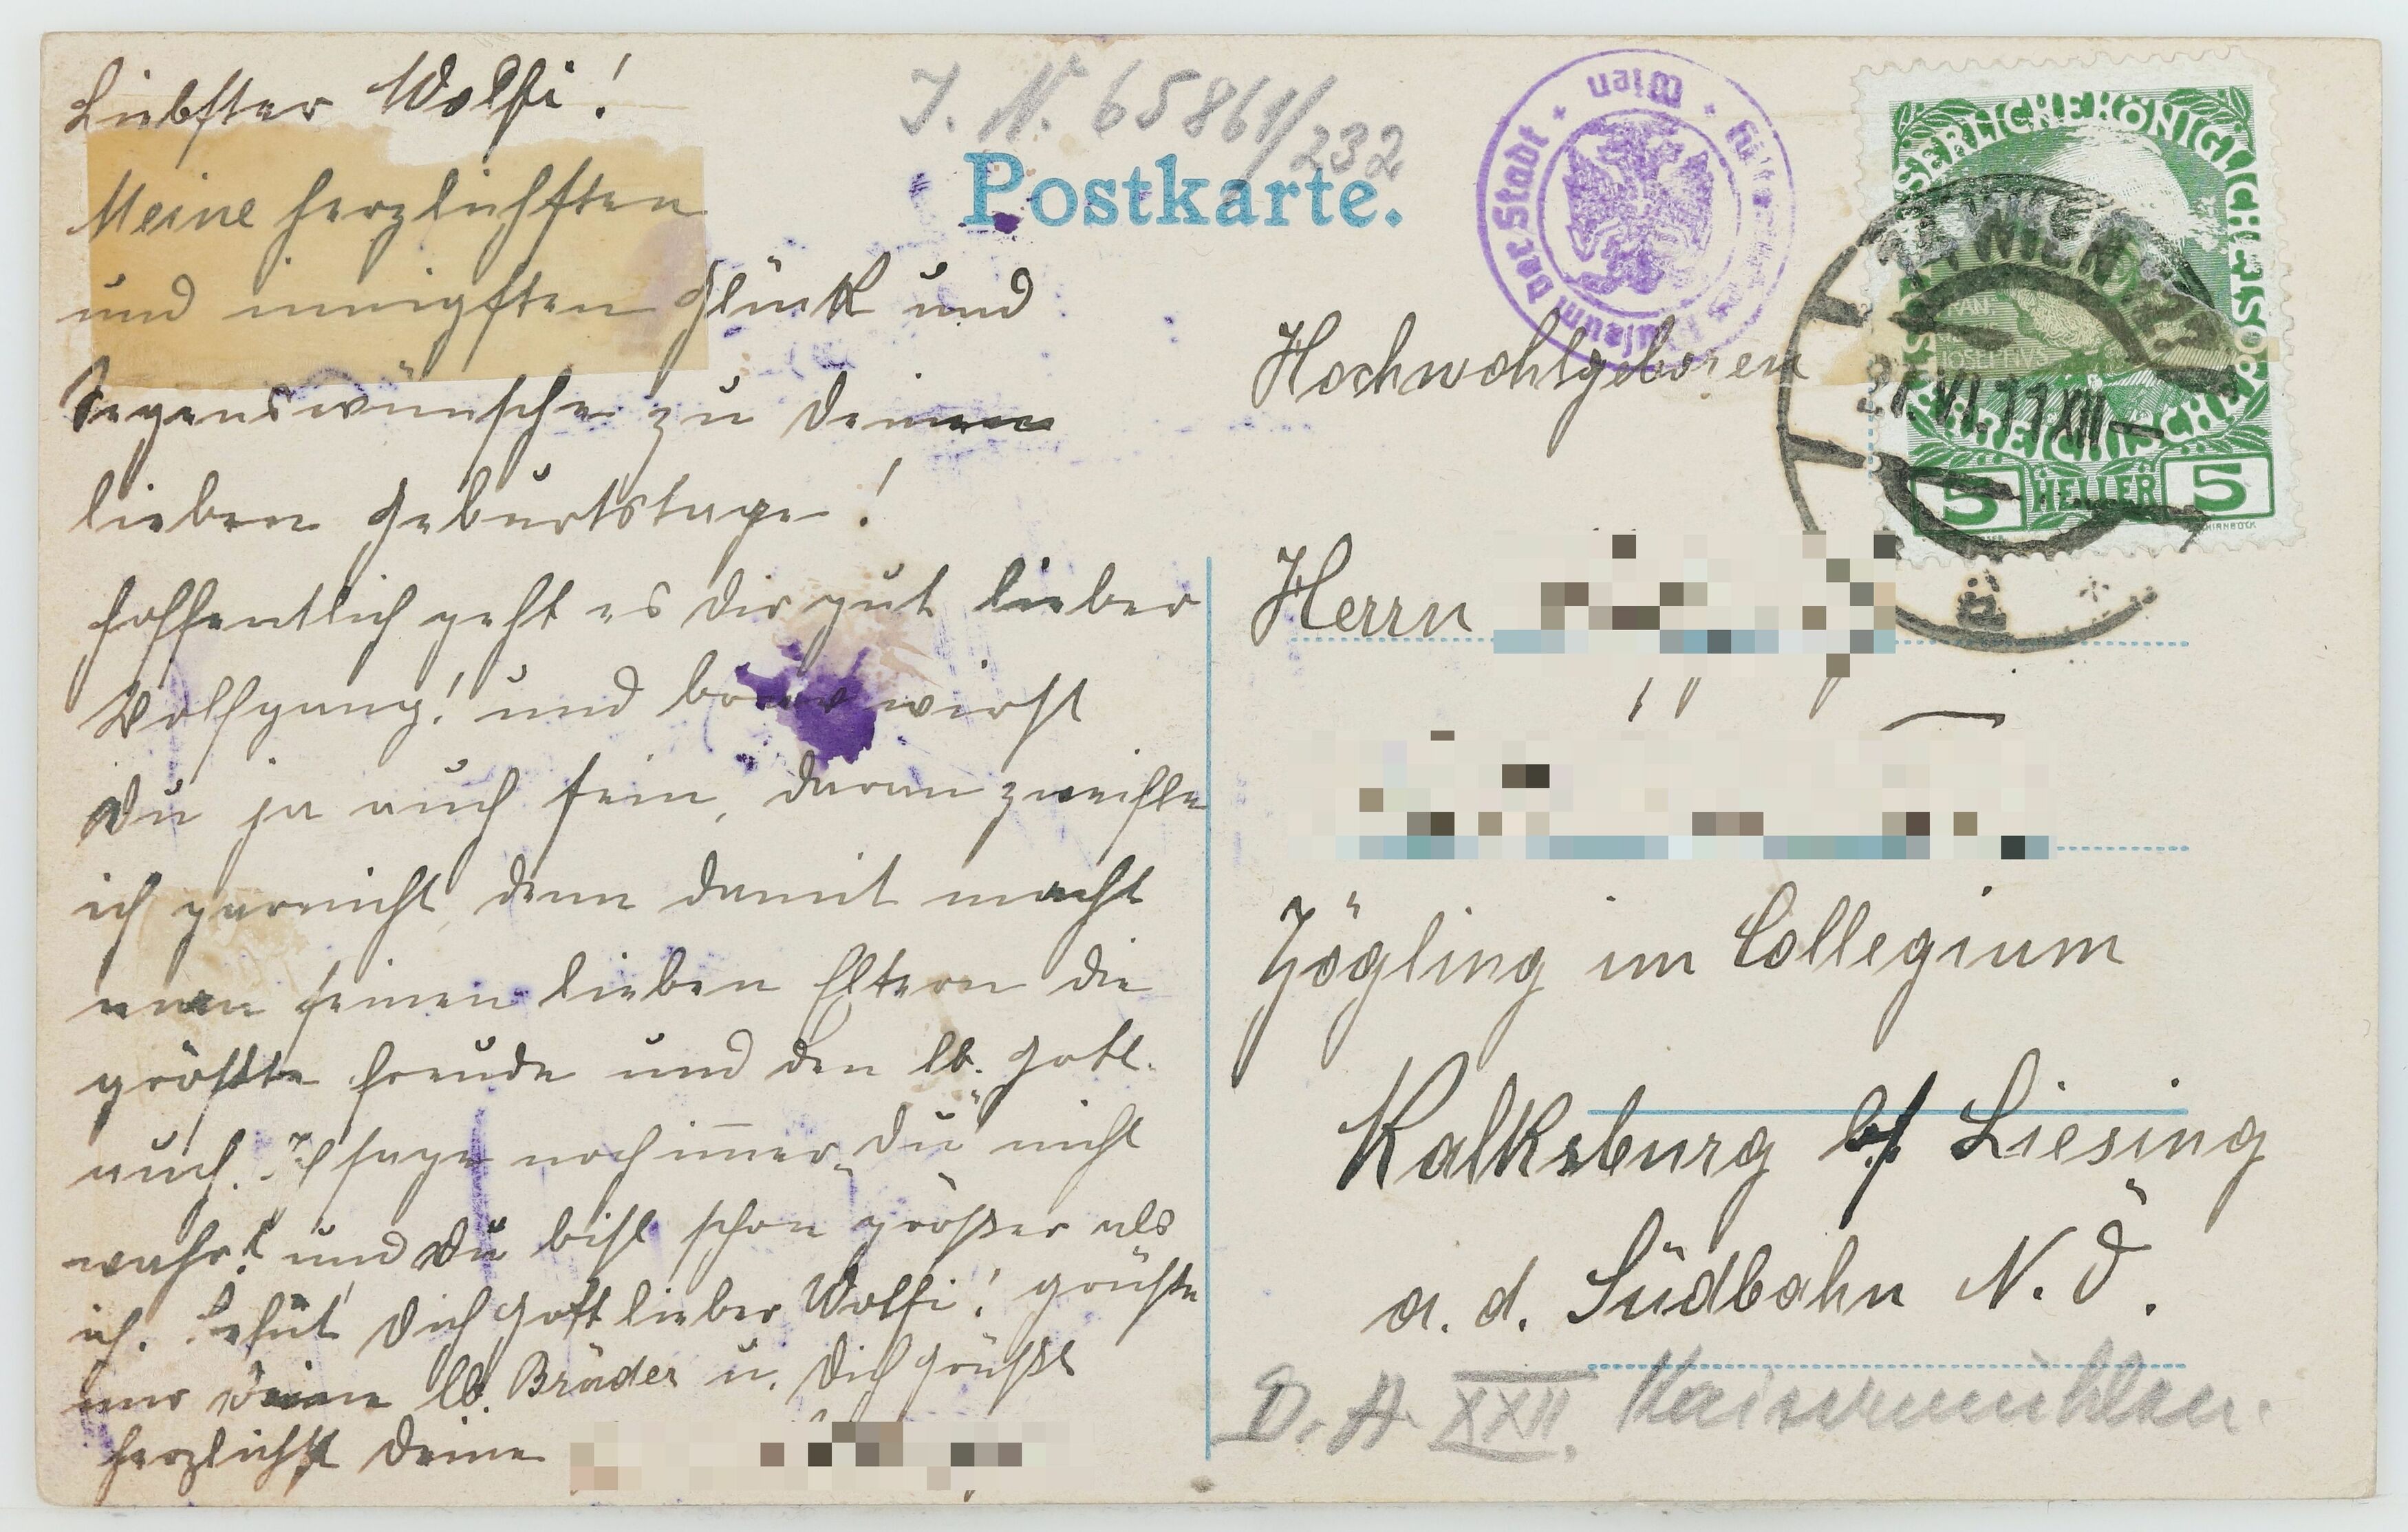 Liebster Wolfi!
Meine herzlichsten
und innigsten Glück und
Segenswünsche zu Deinem
lieben Geburtstage!
Hoffentlich geht es Dir gut lieber
Wolfgang! und brav wirst
Du ja auch sein, daran zweifle
ich garnicht denn damit macht
man seinen lieben Eltern die
größte Freude und den lb. Gott
auch. Ich sage noch immer „Du“ nicht
wahr? und Du bist schon größer als
ich. Behüt' Dich Gott lieber Wolfi! grüße
mir Deine lb. Brüder u. Dich grüßt
herzlichst Deine
J. N. 65861/232
Postkarte.
Museum der Stadt Wien
KAISERLICHE KÖNIGLICHE ÖSTERREICHISCHE
FRANZ JOSEPH
5 HELLER 5
SCHIRNBÖCK
WIEN
21.VI.11 XII
Hochwohlgeboren
Herrn
Zögling im Collegium
Kalksburg b/ Liesing
a. d. Südbahn N. Ö.
D. A. XXII. Kaisermühlen.